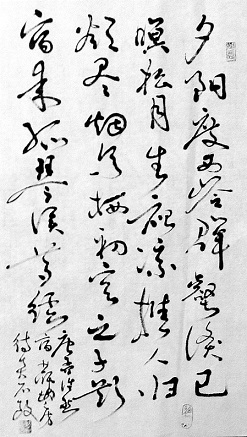 夕陽度西岭群壑倏已
暝松月生夜凉樵人归
欲尽烟鸟栖初定之子期
宿来孤琴候萝径
唐孟浩然
宿业师山房
待